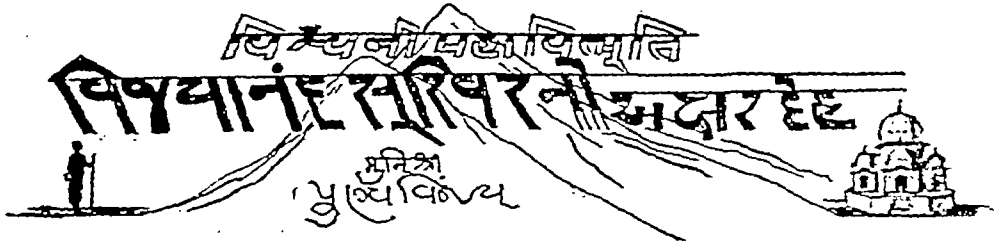 विश्वनी विभूति
विजयानंदसूरिवरनो अक्षर देह
मुनिश्री
पुण्यविजय